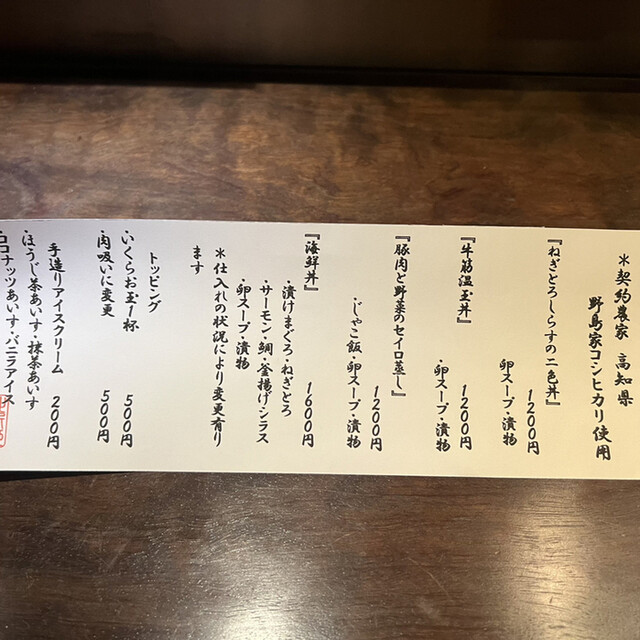 ＊契約農家　高知県
野島家コシヒカリ使用
『ねぎとろしらすの二色丼』
1200円
・卵スープ・漬物
『牛筋温玉丼』
1200円
・卵スープ・漬物
『豚肉と野菜のセイロ蒸し』
1200円
・じゃこ飯・卵スープ・漬物
『海鮮丼』
1600円
・漬けまぐろ・ねぎとろ
・サーモン・鯛・釜揚げシラス
・卵スープ・漬物
＊仕入れの状況により変更有り
ます
トッピング
・いくらお玉1杯　500円
・肉吸いに変更　500円
手造りアイスクリーム　200円
・ほうじ茶あいす・抹茶あいす
・ココナッツあいす・バニラアイス